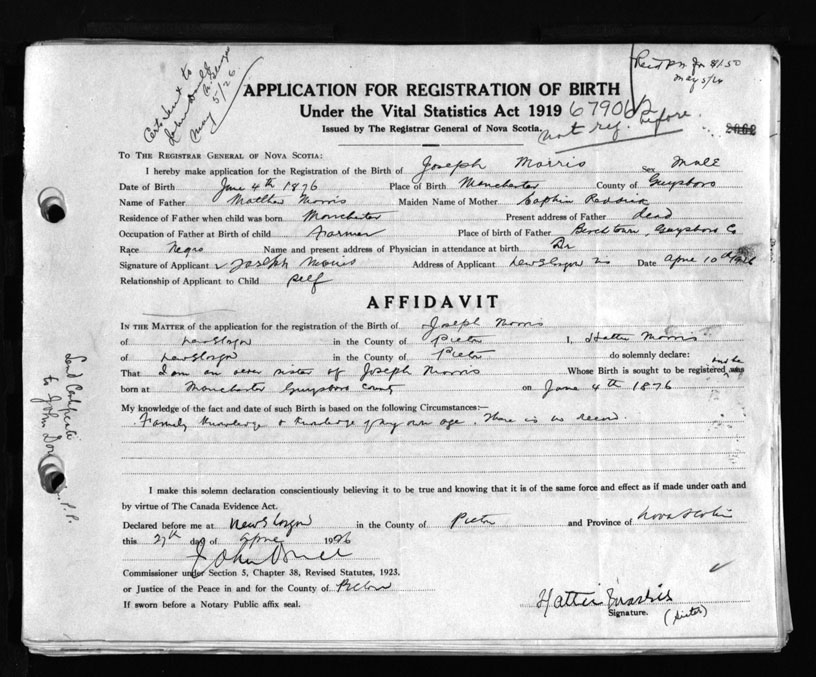 Certs sent to
John Doull
N. Glasgow
May 5/26
Recd pm for $1.50
May 5/26
APPLICATION FOR REGISTRATION OF BIRTH
Under the Vital Statistics Act 1919 679062
Issued by The Registrar General of Nova Scotia. not reg. before.
TO THE REGISTRAR GENERAL OF NOVA SCOTIA:
I hereby make application for the Registration of the Birth of Joseph Morris Sex Male
Date of Birth June 4th 1876 Place of Birth Manchester County of Guysboro
Name of Father Matthew Morris Maiden Name of Mother Reddick
Residence of Father when child was born Manchester Present address of Father dead
Occupation of Father at Birth of child Farmer Place of birth of Father Birchtown, Guysboro Co
Race Negro Name and present address of Physician in attendance at birth Dr
Signature of Applicant Joseph Morris Address of Applicant New Glasgow NS Date April 10th 1926
Relationship of Applicant to Child self
AFFIDAVIT
IN THE MATTER of the application for the registration of the Birth of Joseph Morris
of New Glasgow in the County of Pictou I, Hattie Morris
of New Glasgow in the County of Pictou do solemnly declare:
That I am an sister of Joseph Morris Whose Birth is sought to be registered, and he was
born at Manchester Guysboro County on June 4th 1876
My knowledge of the fact and date of such Birth is based on the following Circumstances:—
Family knowledge & knowledge of my own age. There is no record.
I make this solemn declaration conscientiously believing it to be true and knowing that it is of the same force and effect as if made under oath and
by virtue of The Canada Evidence Act.
Declared before me at New Glasgow in the County of Pictou and Province of Nova Scotia
this 27th day of April 1926
John Doull
Commissioner under Section 5, Chapter 38, Revised Statutes, 1923.
or Justice of the Peace in and for the County of Pictou
If sworn before a Notary Public affix seal.
Hattie Morris
Signature. (Sister)
Send Certificate
to John Doull M.P.P.